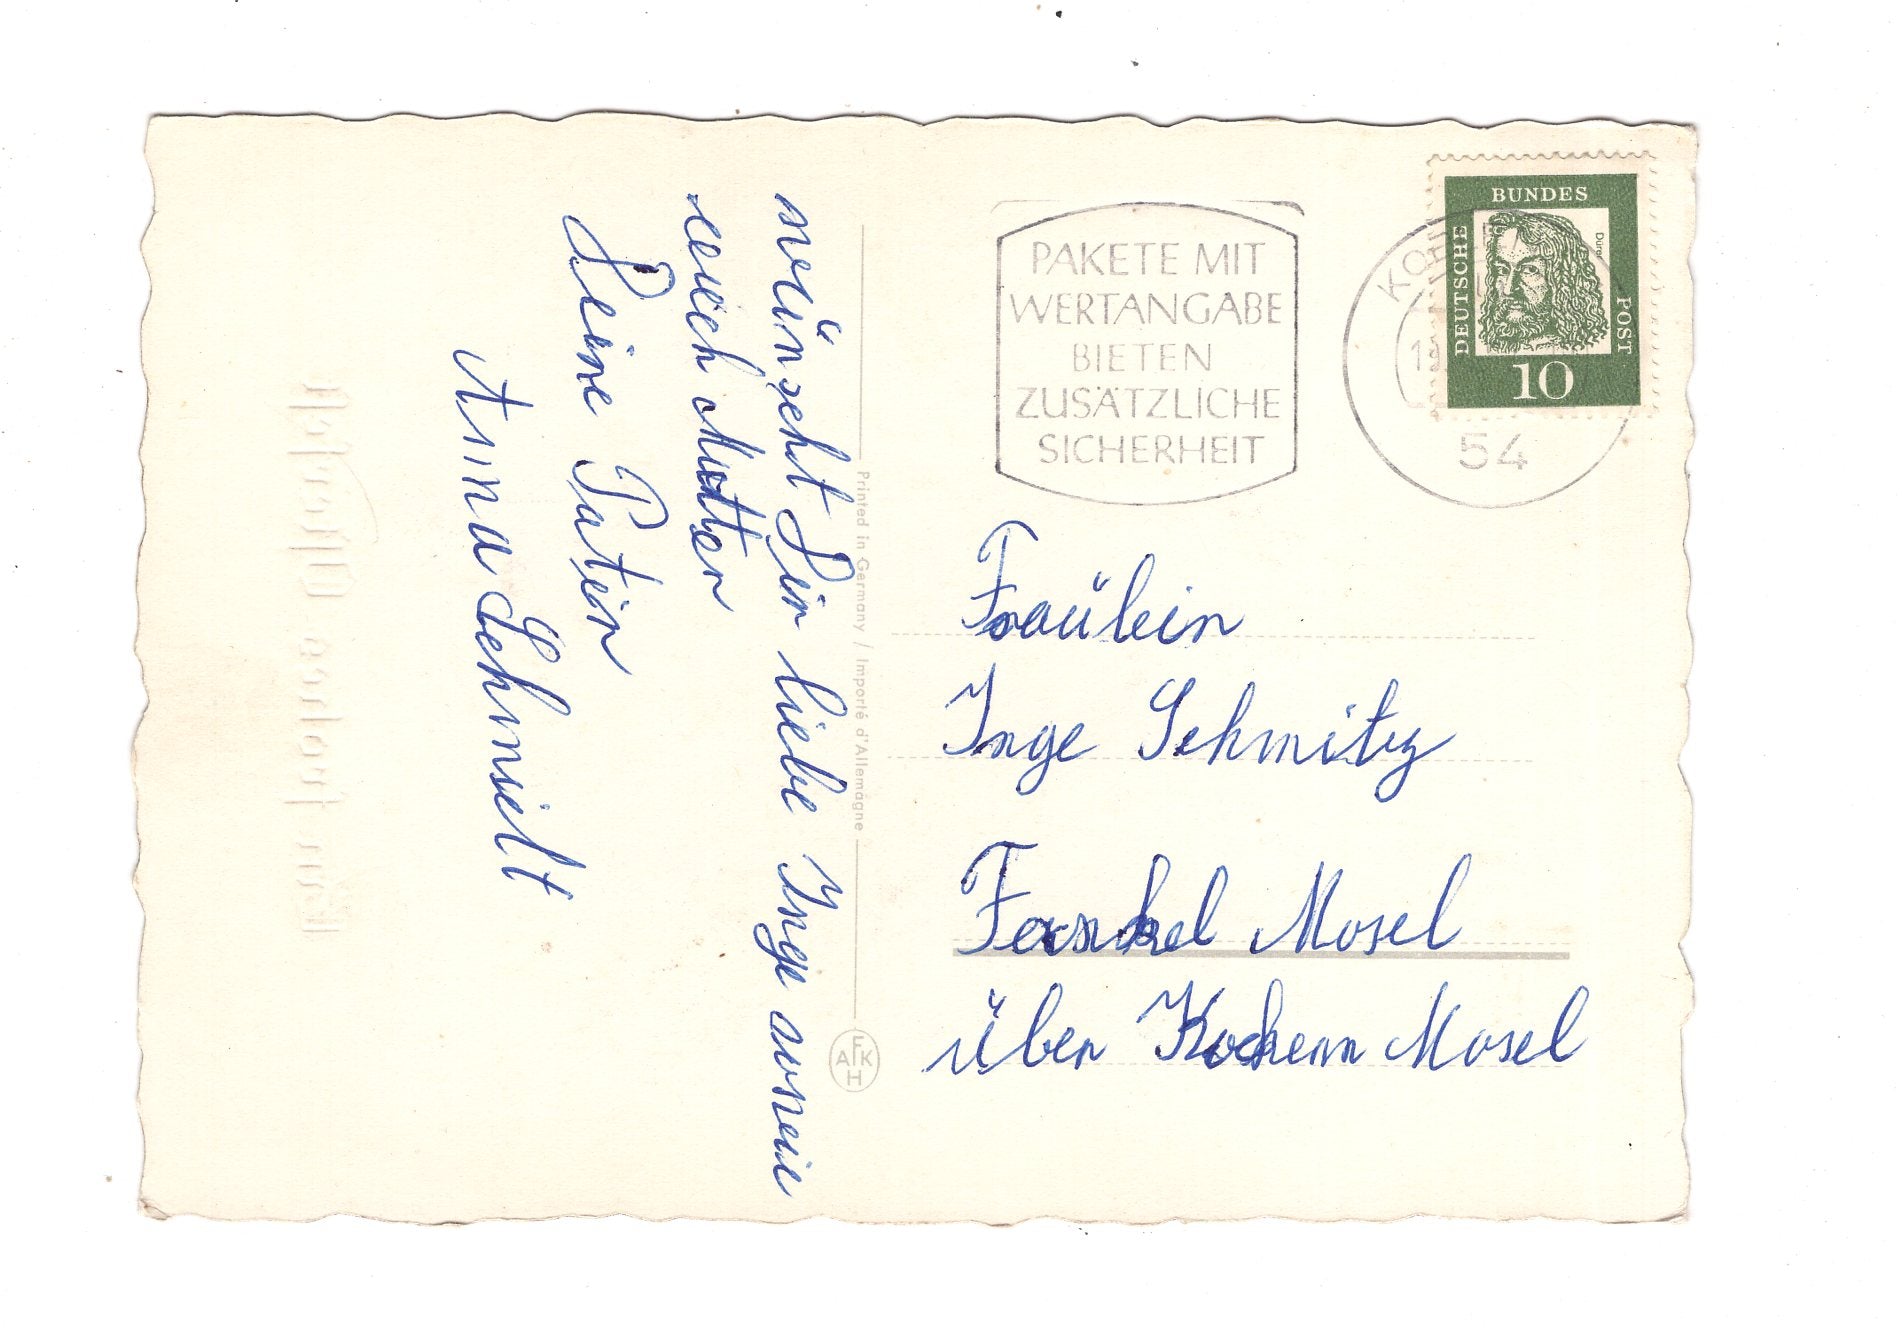 wünscht Dir liebe Inge sowie
euch Mutter
Deine Patin
Anna Schmidt
Printed in Germany / Importé d'Allemagne
AFKH
PAKETE MIT
WERTANGABE
BIETEN
ZUSÄTZLICHE
SICHERHEIT
54
DEUTSCHE BUNDES POST
Dürer
10
Fraülein
Inge Schmitz
Fankel Mosel
über Kochem Mosel